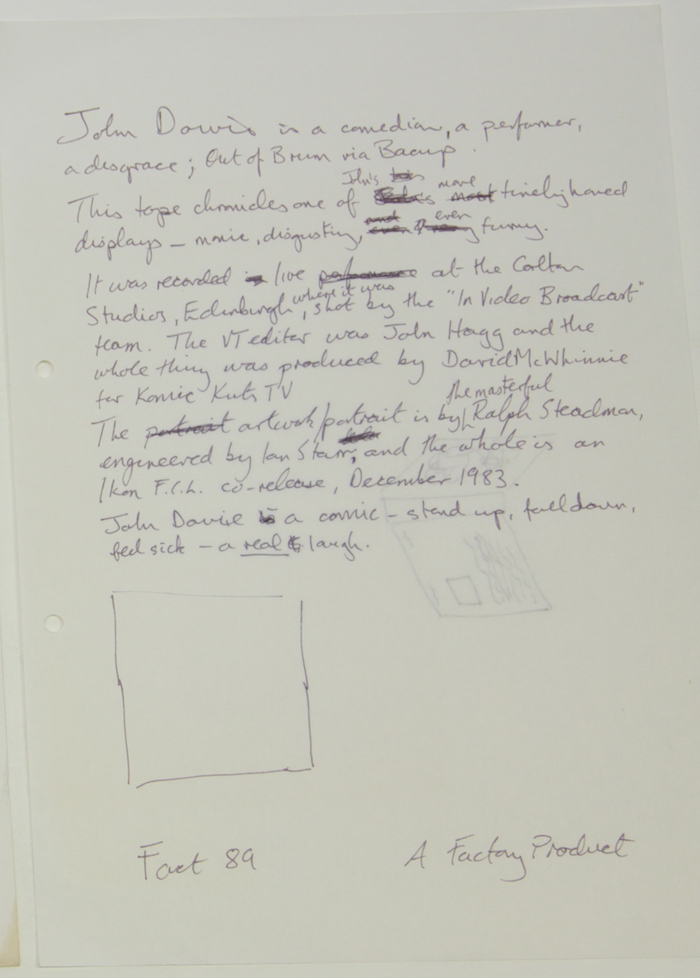 John Dowie is a comedian, a performer,
a disgrace; Out of Brum via Bacup.
This tape chronicles one of John's more finely honed
displays – manic, disgusting, even funny.
It was recorded live at the Carlton
Studios, Edinburgh, where it was shot by the "In Video Broadcast"
team. The VT editor was John Hagg and the
whole thing was produced by David McWhinnie
for Komic Kuts TV
The artwork/portrait is by the masterful Ralph Steadman,
engineered by Ian Starr, and the whole is an
Ikon F.C.L. co-release, December 1983.
John Dowie is a comic – stand up, fall down,
feel sick – a real laugh.
Fact 89
A Factory Product